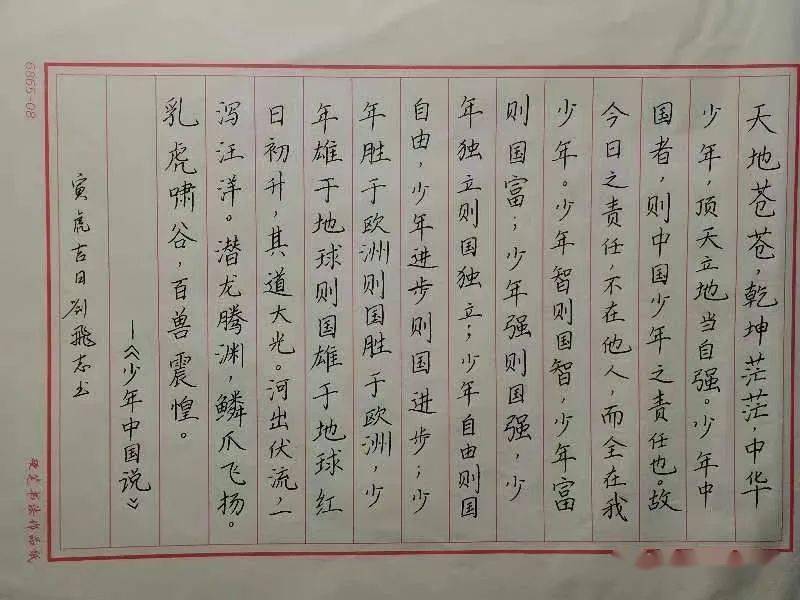 天地苍苍，乾坤茫茫，中华
少年，顶天立地当自强。少年中
国者，则中国少年之责任也。故
今日之责任，不在他人，而全在我
少年。少年智则国智，少年富
则国富；少年强则国强，少
年独立则国独立；少年自由则国
自由，少年进步则国进步；少
年胜于欧洲则国胜于欧洲，少
年雄于地球则国雄于地球红
日初升，其道大光。河出伏流，一
泻汪洋。潜龙腾渊，鳞爪飞扬。
乳虎啸谷，百兽震惶。
—《少年中国说》
寅虎吉日刘飛志书
6865-08
硬笔书法作品纸